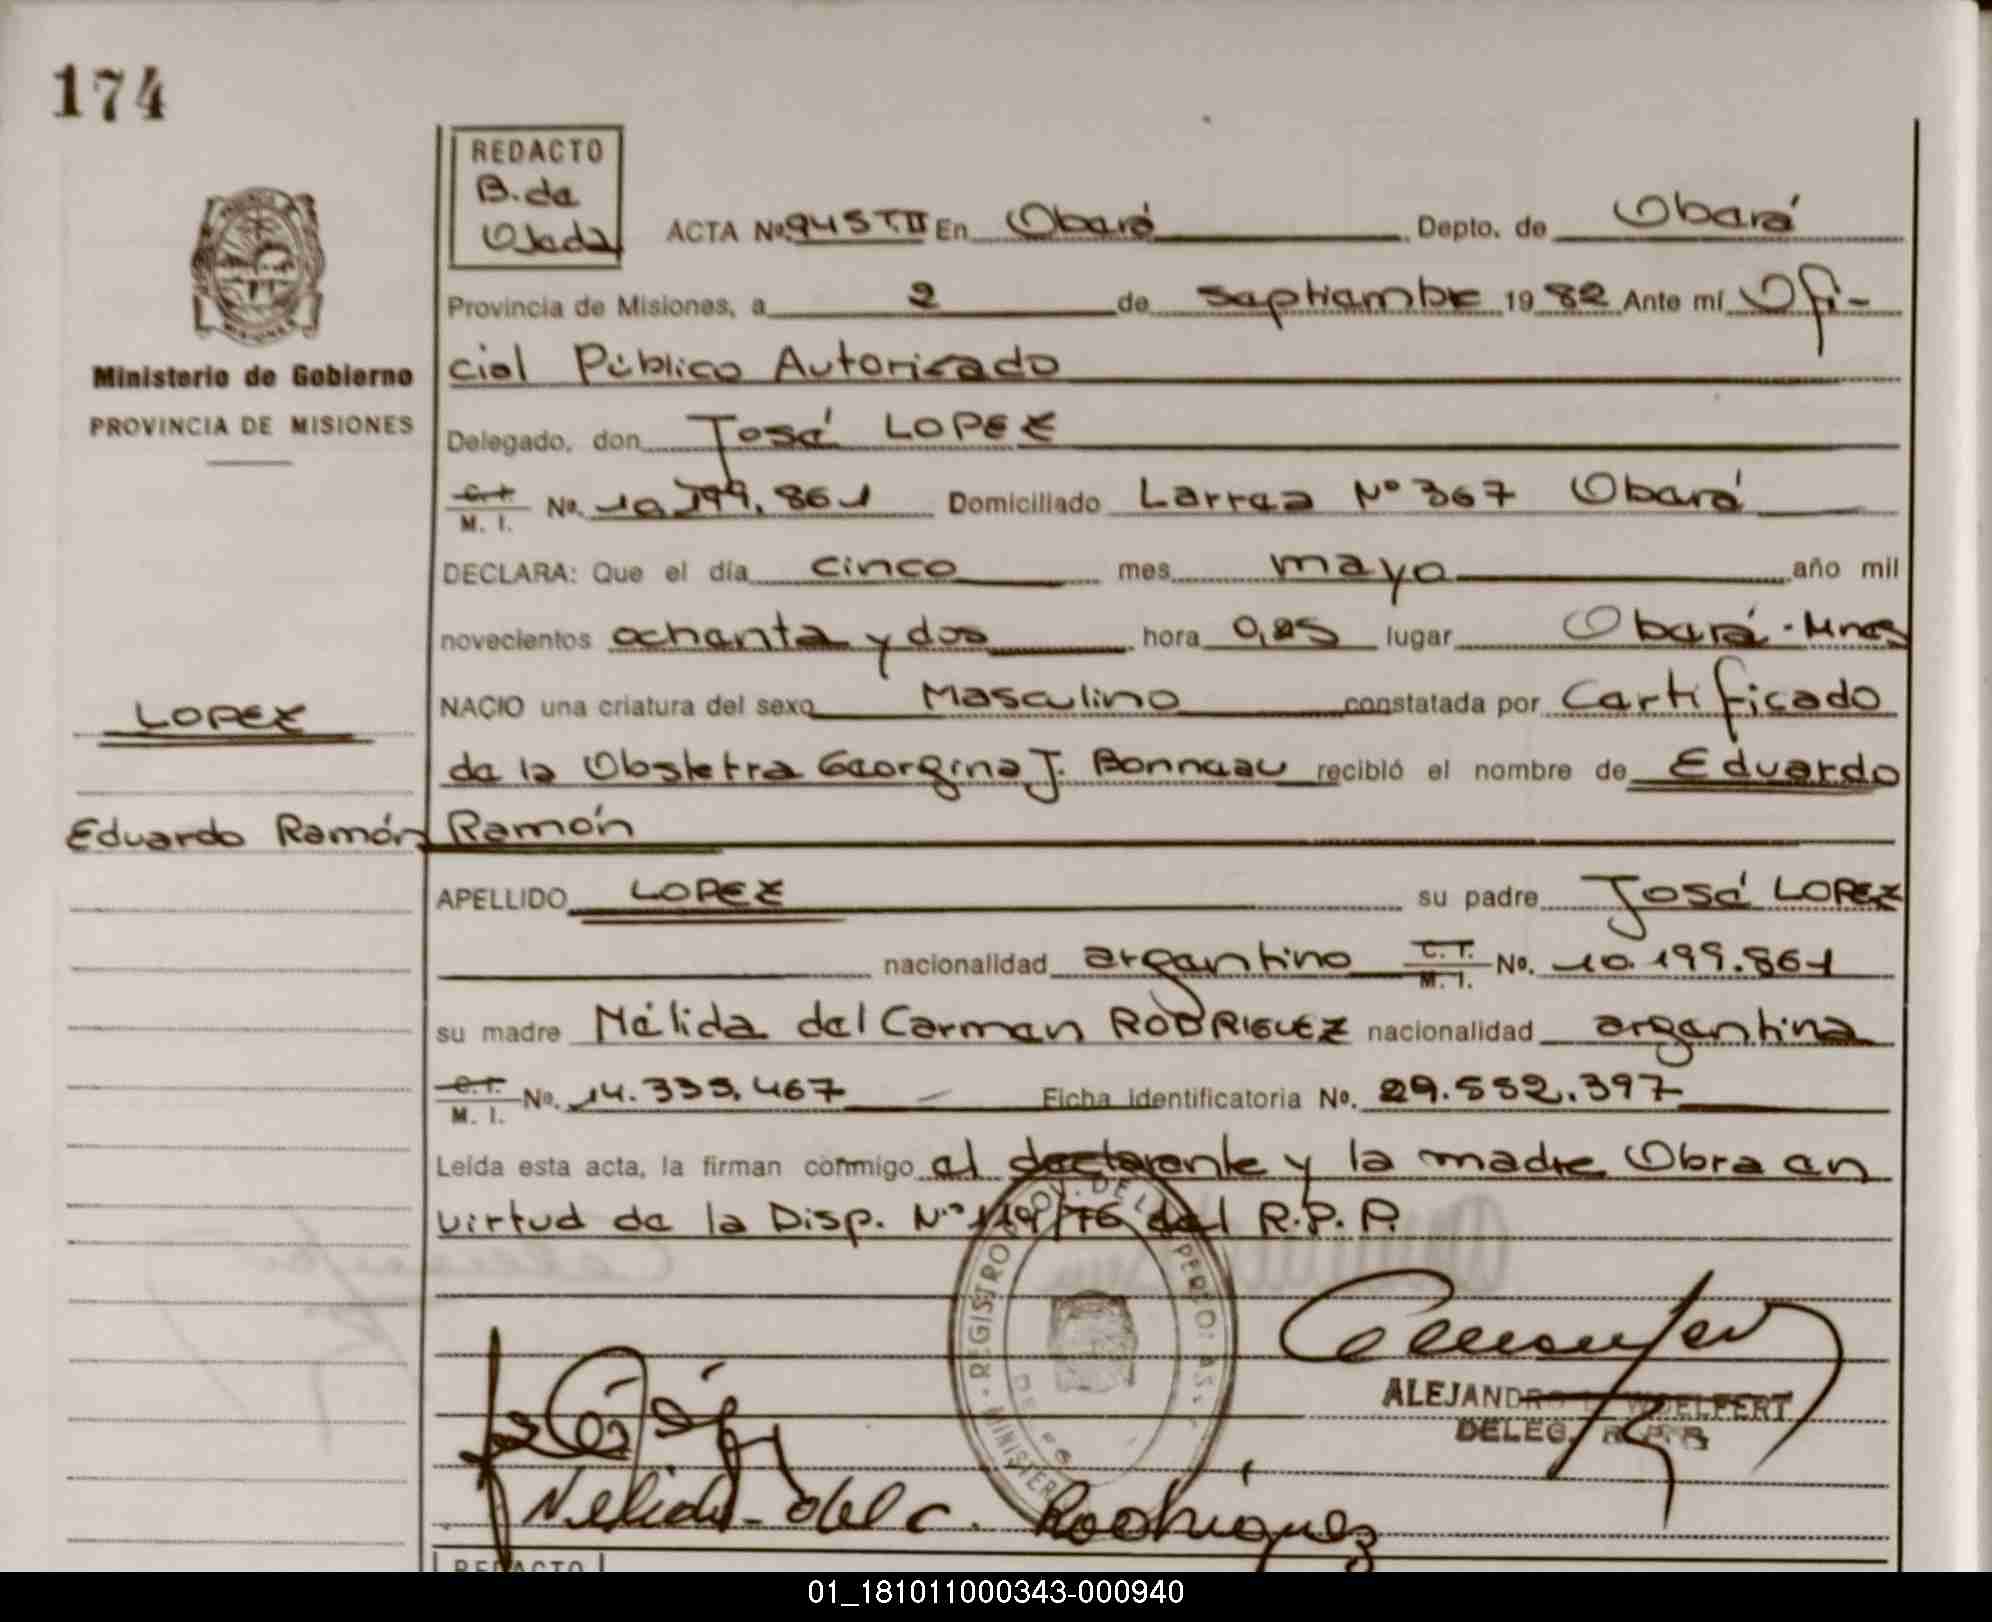 174
REDACTO
B. de
Ojeda
ACTA No. 945 T.II En Oberá Depto. de Oberá
Provincia de Misiones, a 2 de septiembre 1982 Ante mí Ofi-
cial Público Autorizado
Ministerio de Gobierno
PROVINCIA DE MISIONES
Delegado, don José LOPEZ
C.I. M. I. No. 10.199.861 Domiciliado Larrea Nº 367 Oberá
DECLARA: Que el día cinco mes mayo año mil
novecientos ochenta y dos hora 0,05 lugar Oberá - Mnes
NACIO una criatura del sexo Masculino constatada por Certificado
de la Obstetra Georgina J. Bonneau recibió el nombre de Eduardo
Ramón
LOPEZ
Eduardo Ramón
APELLIDO LOPEZ su padre José LOPEZ
nacionalidad argentino C.I. M. I. No. 10.199.861
su madre Nélida del Carmen RODRIGUEZ nacionalidad argentina
C.I. M. I. No. 14.333.467 Ficha identificatoria No. 29.552.397
Leída esta acta, la firman conmigo el declarante y la madre Obra en
virtud de la Disp. Nº 119/76 del R.P.P.
REGISTRO PROV. DE LAS PERSONAS
ALEJANDRO WOELFERT
DELEG. R.P.P.
Nelida del C. Rodriguez
REDACTO
01_181011000343-000940